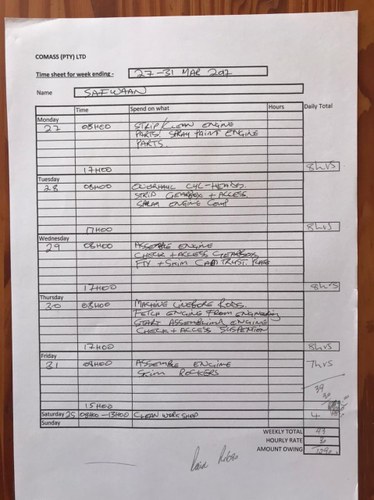 COMASS (PTY) LTD
Time sheet for week ending :- 27-31 MAR 2017
Name SAFWAAN
Time Spend on what Hours Daily Total
Monday
27 08H00 STRIP/CLEAN ENGINE
PARTS. SPRAY PAINT ENGINE
PARTS
17H00 8hrs
Tuesday
28 08H00 OVERHAUL CYL-HEADS.
STRIP GEARBOX + ACCESS
SPRAY ENGINE COMP
17H00 8hrs
Wednesday
29 08H00 ASSEMBLE ENGINE
CHECK + ACCESS GEARBOX
FIT + SHIM CAM THRUST PLATE
17H00 8hrs
Thursday
30 08H00 MACHINE LINEBORE RODS.
FETCH ENGINE FROM ENGINEERING
START ASSEMBLING ENGINE
CHECK + ACCESS SUSPENSION
17H00 8hrs
Friday
31 08H00 ASSEMBLE ENGINE 7hrs
SHIM ROCKERS
39
15H00
Saturday 25 08H00 - 13H00 CLEAN WORKSHOP 4
Sunday
WEEKLY TOTAL 43
HOURLY RATE
AMOUNT OWING